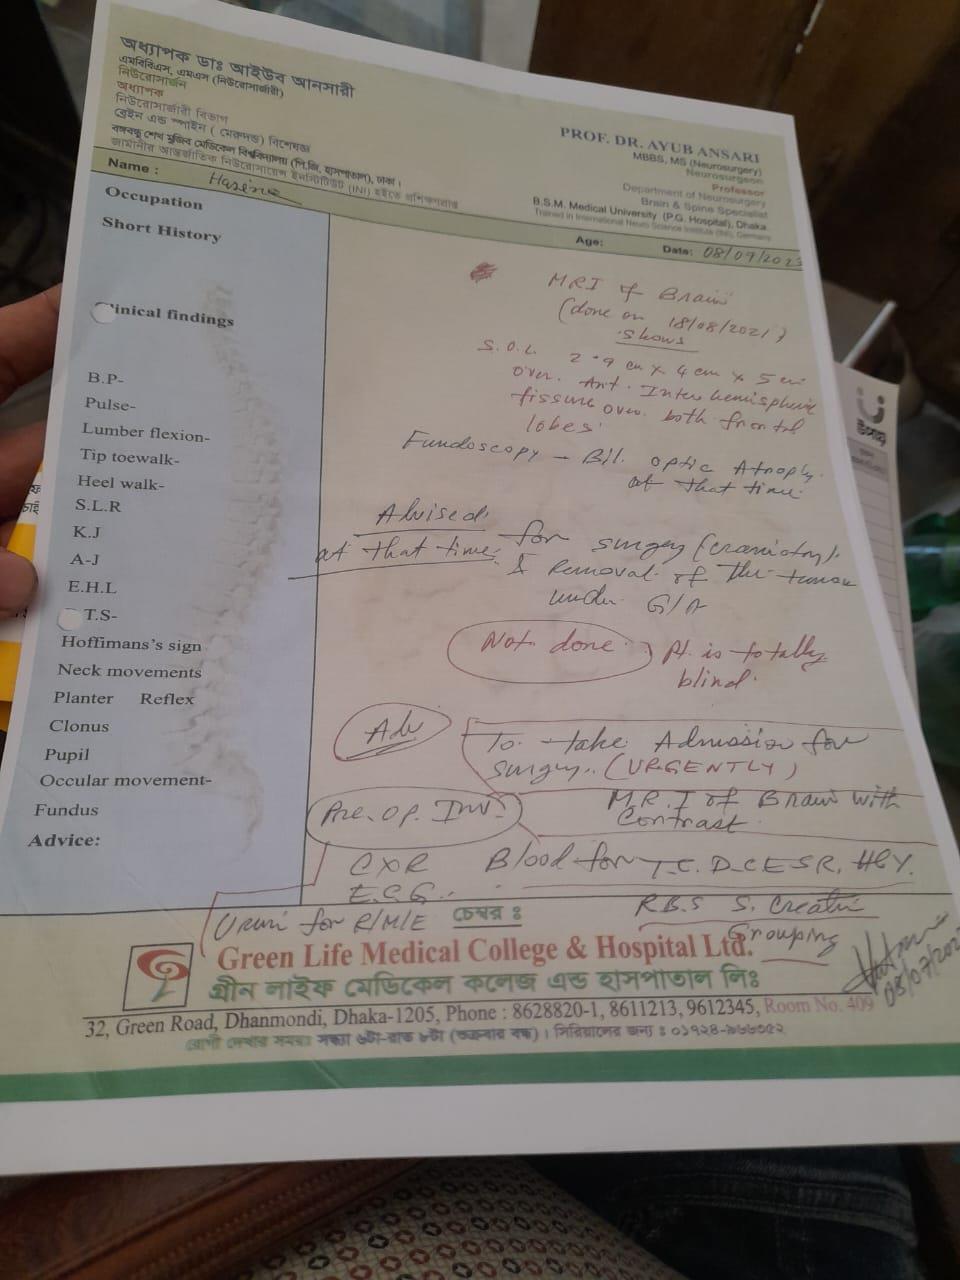 অধ্যাপক ডাঃ আইউব আনসারী
এমবিবিএস, এমএস (নিউরোসার্জারী)
নিউরোসার্জন
অধ্যাপক
নিউরোসার্জারী বিভাগ
ব্রেইন এন্ড স্পাইন ( মেরুদন্ড) বিশেষজ্ঞ
বঙ্গবন্ধু শেখ মুজিব মেডিকেল বিশ্ববিদ্যালয় (পি.জি, হাসপাতাল), ঢাকা।
জার্মানীর আন্তর্জাতিক নিউরোসায়েন্স ইনস্টিটিউট (INI) হইতে প্রশিক্ষণপ্রাপ্ত
PROF. DR. AYUB ANSARI
MBBS, MS (Neurosurgery)
Neurosurgeon
Professor
Department of Neurosurgery
Brain & Spine Specialist
B.S.M. Medical University (P.G. Hospital), Dhaka
Trained in International Neuro Science Institute (INI), Germany
Name : Hasina
Age: Date: 08/09/2023
Occupation
Short History
Clinical findings
B.P-
Pulse-
Lumber flexion-
Tip toewalk-
Heel walk-
S.L.R
K.J
A-J
E.H.L
T.S-
Hoffimans's sign
Neck movements
Planter Reflex
Clonus
Pupil
Occular movement-
Fundus
Advice:
MRI of Brain
(done on 18/08/2021)
shows
S.O.L. 2.9 cm x 4 cm x 5 cm
over. Ant. Inter hemispheric
fissure over both frontal
lobes
Fundoscopy - Bil. optic Atrophy.
at that time.
Advised
at that time. for surgery
& Removal of the tumour
under G/A
Not done Pt. is totally
blind.
Adv To take Admission for
surgery.. (URGENTLY)
Pre. Op. Inv. M.R.I of Brain with
Contrast.
CXR Blood for T.C. D.C ESR, H
E.C.G.
R.B.S S. Creatin
Urin for R/M/E চেম্বার ঃ Grouping
Green Life Medical College & Hospital Ltd.
গ্রীন লাইফ মেডিকেল কলেজ এন্ড হাসপাতাল লিঃ
32, Green Road, Dhanmondi, Dhaka-1205, Phone : 8628820-1, 8611213, 9612345, Room No. 409
রোগী দেখার সময়ঃ সন্ধ্যা ৬টা-রাত ৮টা (শুক্রবার বন্ধ)। সিরিয়ালের জন্য ঃ
উপায়